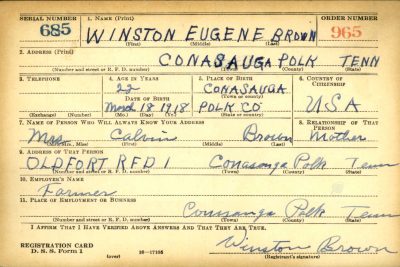 SERIAL NUMBER 1. NAME (Print) ORDER NUMBER
685 WINSTON EUGENE BROWN 965
(First) (Middle) (Last)
2. ADDRESS (Print)
CONASAUGA POLK TENN
(Number and street or R. F. D. number) (Town) (County) (State)
3. TELEPHONE 4. AGE IN YEARS 5. PLACE OF BIRTH 6. COUNTRY OF CITIZENSHIP
22 CONASAUGA
DATE OF BIRTH (Town or county)
March 18 1918 POLK CO USA
(Exchange) (Number) (Mo.) (Day) (Yr.) (State or country)
7. NAME OF PERSON WHO WILL ALWAYS KNOW YOUR ADDRESS 8. RELATIONSHIP OF THAT PERSON
Mrs Calvin Brown Mother
(Mr., Mrs., Miss) (First) (Middle) (Last)
9. ADDRESS OF THAT PERSON
OLDFORT RFD 1 Conasauga Polk Tenn
(Number and street or R. F. D. number) (Town) (County) (State)
10. EMPLOYER'S NAME
Farmer
11. PLACE OF EMPLOYMENT OR BUSINESS
Conasauga Polk Tenn
(Number and street or R. F. D. number) (Town) (County) (State)
I AFFIRM THAT I HAVE VERIFIED ABOVE ANSWERS AND THAT THEY ARE TRUE.
REGISTRATION CARD
D. S. S. Form 1 (over) 16—17105 Winston Brown
(Registrant's signature)